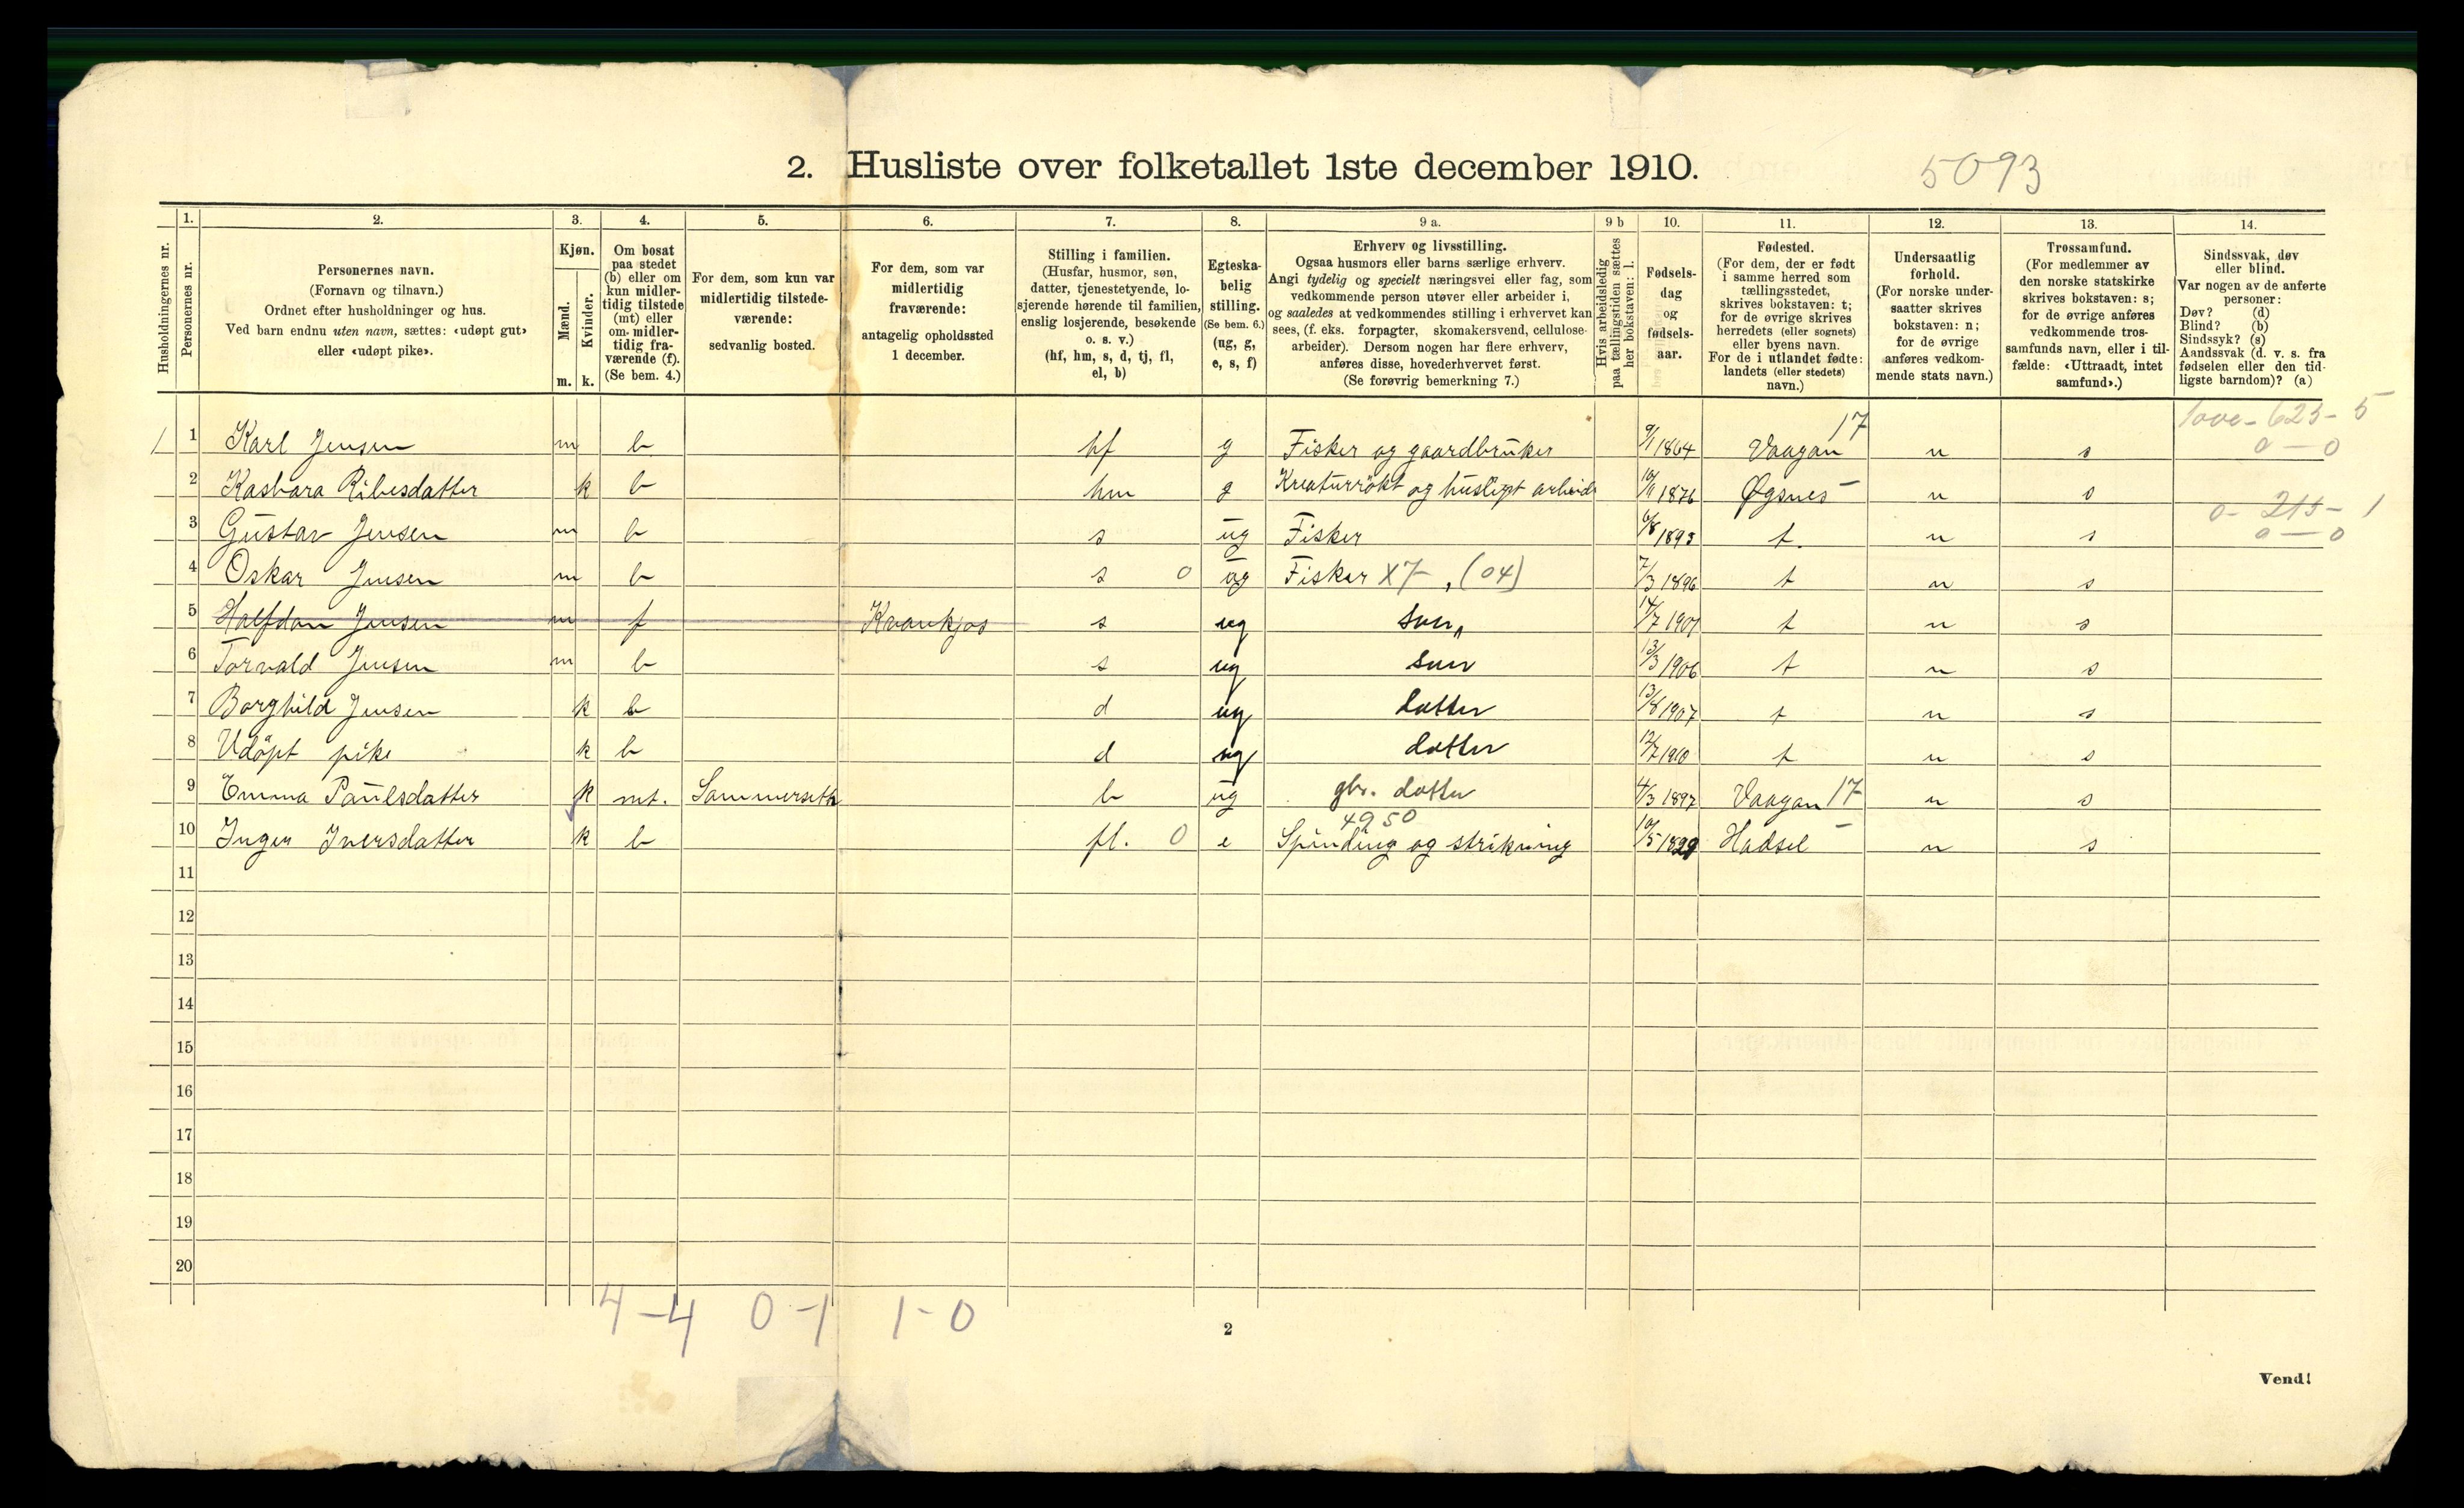 2. Husliste over folketallet 1ste december 1910.
5093
Husholdningernes nr.
1.
Personernes nr.
2.
Personernes navn.
(Fornavn og tilnavn.)
Ordnet efter husholdninger og hus.
Ved barn endnu uten navn, sættes: «udøpt gut»
eller «udøpt pike».
3.
Kjøn.
Mænd.
Kvinder.
m. k.
4.
Om bosat
paa stedet
(b) eller om
kun midler-
tidig tilstede
(mt) eller
om midler-
tidig fra-
værende (f).
(Se bem. 4.)
5.
For dem, som kun var
midlertidig tilstede-
værende:
sedvanlig bosted.
6.
For dem, som var
midlertidig
fraværende:
antagelig opholdssted
1 december.
7.
Stilling i familien.
(Husfar, husmor, søn,
datter, tjenestetyende, lo-
sjerende hørende til familien,
enslig losjerende, besøkende
o. s. v.)
(hf, hm, s, d, tj, fl,
el, b)
8.
Egteska-
belig
stilling.
(Se bem. 6.)
(ug, g,
e, s, f)
9 a.
Erhverv og livsstilling.
Ogsaa husmors eller barns særlige erhverv.
Angi tydelig og specielt næringsvei eller fag, som
vedkommende person utøver eller arbeider i,
og saaledes at vedkommendes stilling i erhvervet kan
sees, (f. eks. forpagter, skomakersvend, cellulose-
arbeider). Dersom nogen har flere erhverv,
anføres disse, hovederhvervet først.
(Se forøvrig bemerkning 7.)
9 b
Hvis arbeidsledig
paa tællingstiden sættes
her bokstaven: l.
10.
Fødsels-
dag
og
fødsels-
aar.
11.
Fødested.
(For dem, der er født
i samme herred som
tællingsstedet,
skrives bokstaven: t;
for de øvrige skrives
herredets (eller sognets)
eller byens navn.
For de i utlandet fødte:
landets (eller stedets)
navn.)
12.
Undersaatlig
forhold.
(For norske under-
saatter skrives
bokstaven: n;
for de øvrige
anføres vedkom-
mende stats navn.)
13.
Trossamfund.
(For medlemmer av
den norske statskirke
skrives bokstaven: s;
for de øvrige anføres
vedkommende tros-
samfunds navn, eller i til-
fælde: «Uttraadt, intet
samfund».)
14.
Sindssvak, døv
eller blind.
Var nogen av de anførte
personer:
Døv? (d)
Blind? (b)
Sindssyk? (s)
Aandssvak (d. v. s. fra
fødselen eller den tid-
ligste barndom)? (a)
1 1 Karl Jensen m b hf g Fisker og gaardbruker 9/1 1864 Vaagan 17 n s 625 - 5
0 — 0
2 Kasbara Ribesdatter k b hm g Kreaturrøkt og husligt arbeide 1876 Øgsnes - n s
3 Gustav Jensen m b s ug Fisker 6/8 1893 t. n s 0 - 215 - 1
0 — 0
4 Oskar Jensen m b s 0 ug Fisker X7-, (04) 7/3 1896 t n s
5 Halfdan Jensen m f Kvankjos s ug søn 14/7 1901 t n s
6 Torvald Jensen m b s ug søn 13/3 1906 t n s
7 Borghild Jensen k b d ug datter 13/8 1907 t n s
8 Udöpt pike k b d ug datter 12/7 1910 t n s
9 Emma Paulsdatter k mt. Sommerseth b ug gbr. datter 4/3 1897 Vaagan 17 n s
4950
10 Inger Iversdatter k b fl. 0 e Spinding og strikning 10/5 1829 Hadsel - n s
11
12
13
14
15
16
17
18
19
20
4-4 0-1 1-0
2
Vend!